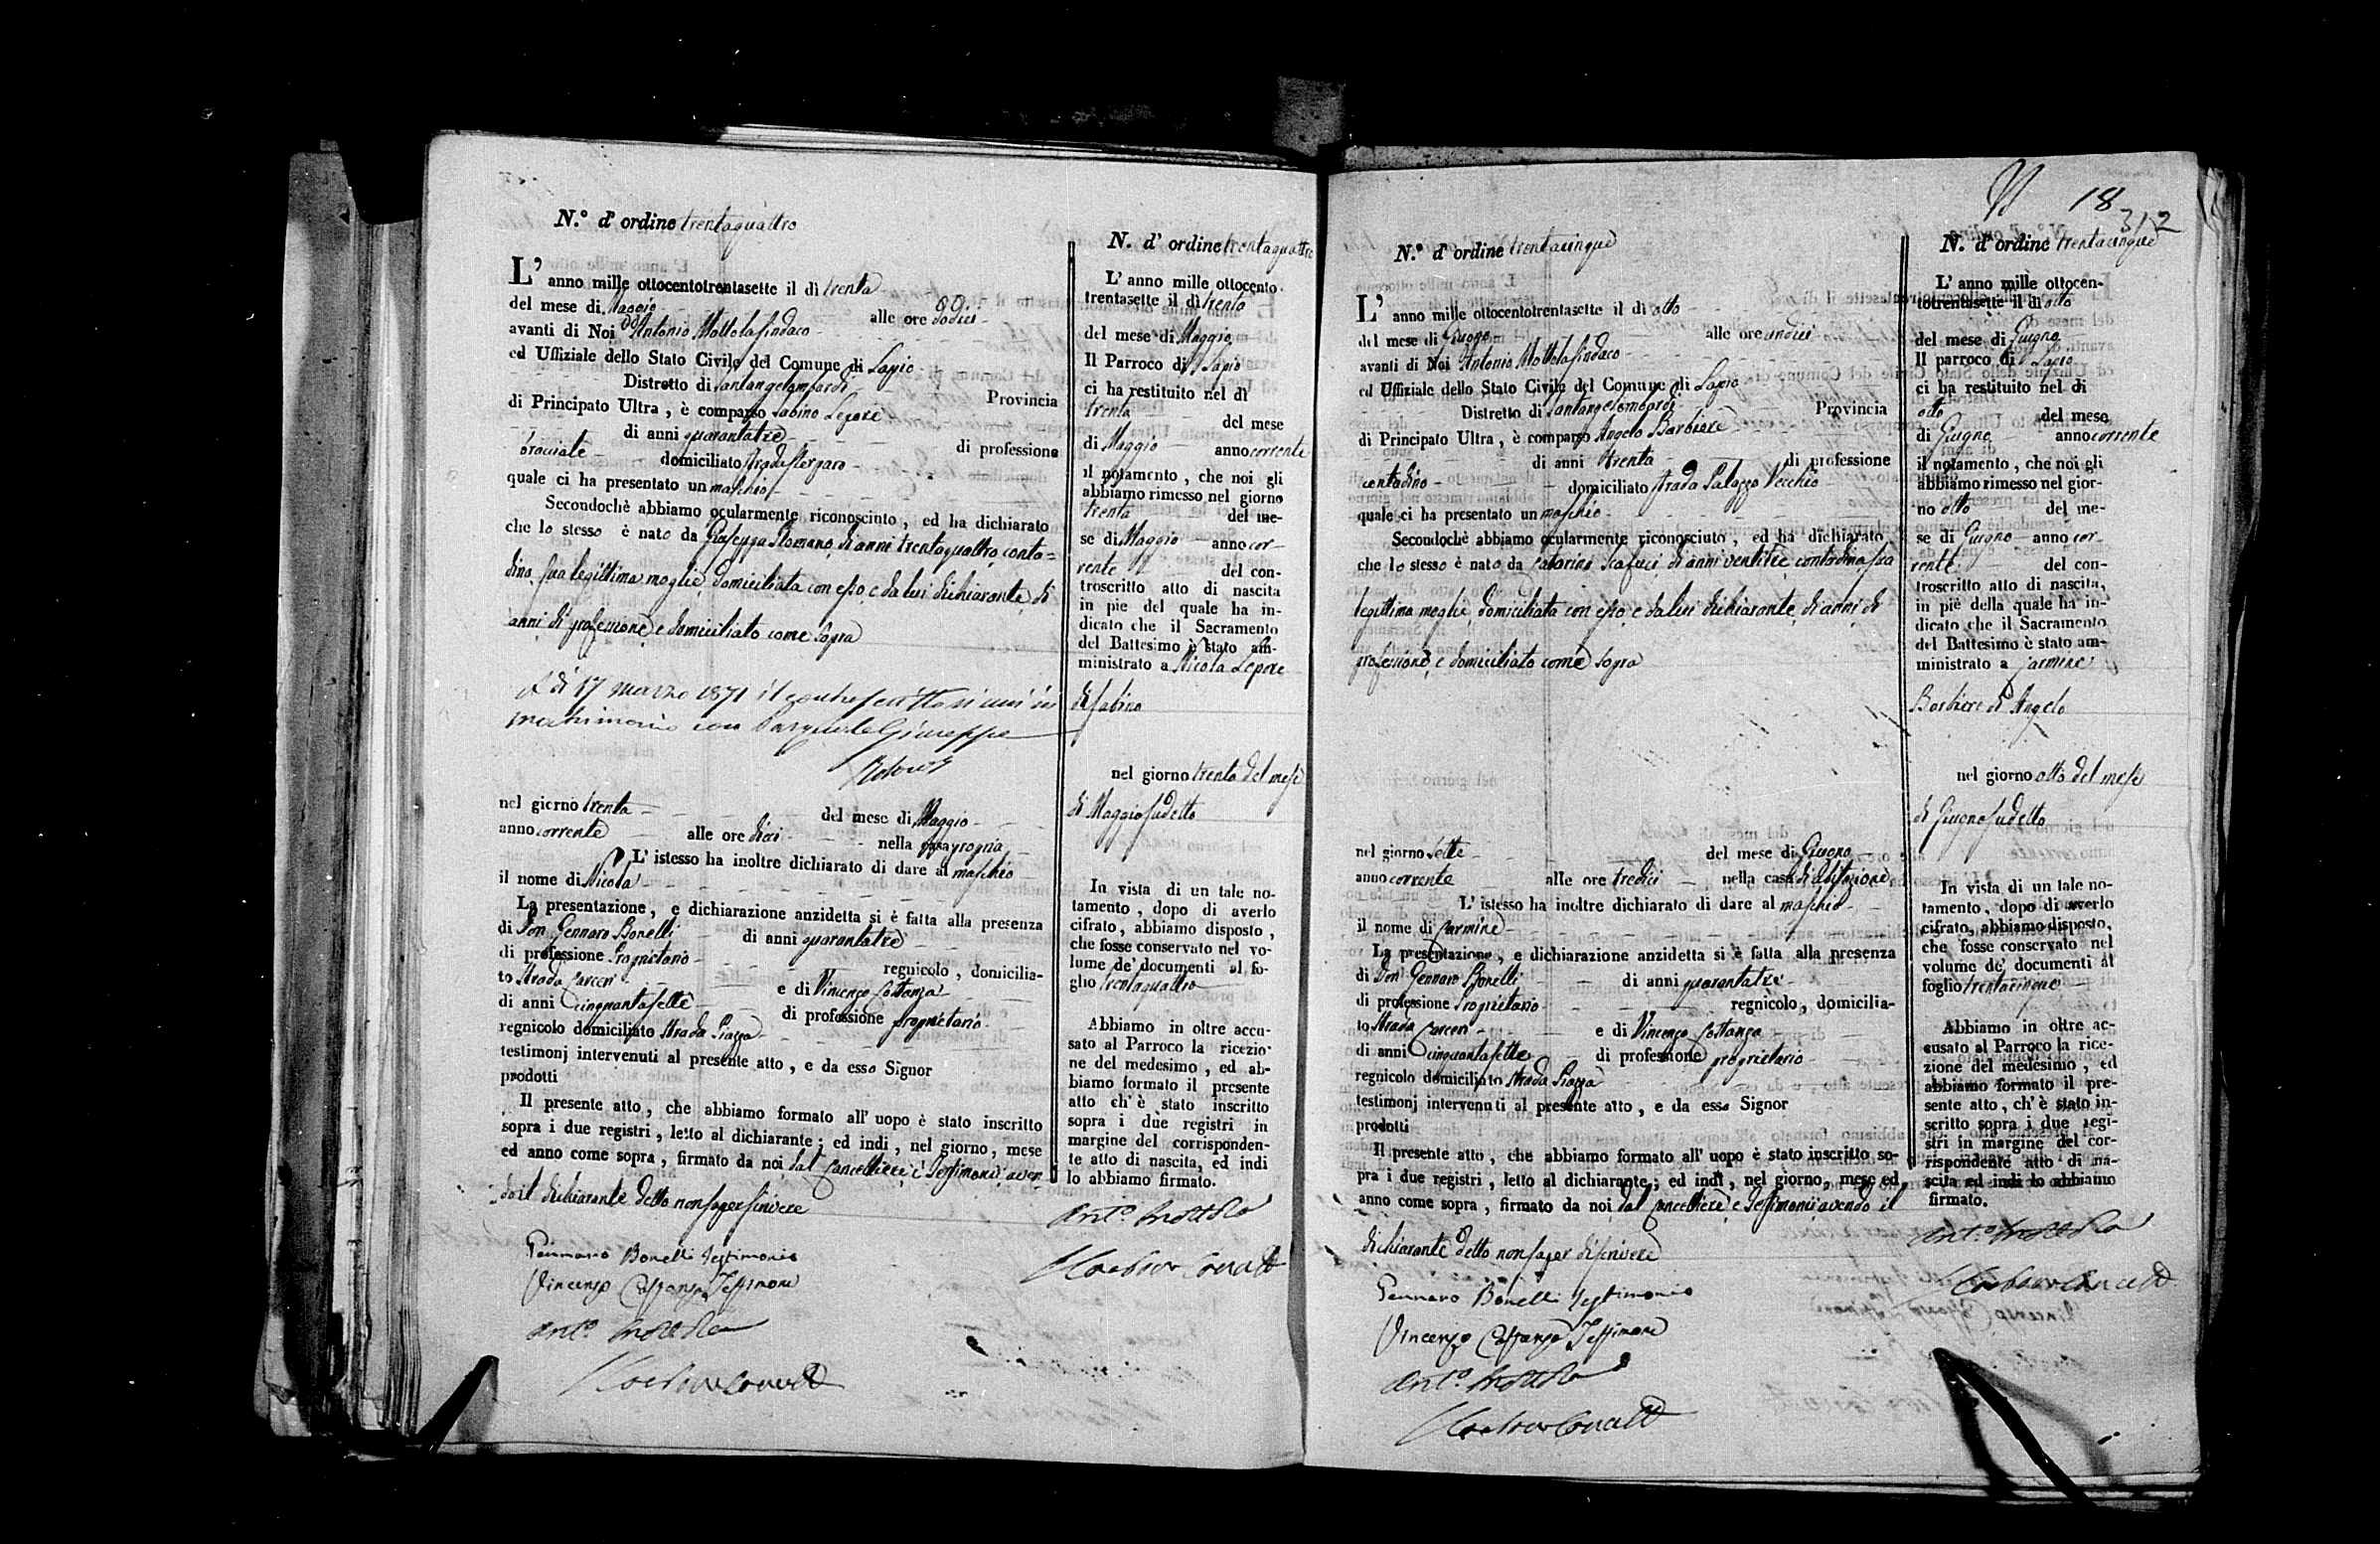 N.º d' ordine trentaquattro
L' anno mille ottocentotrentasette il dì trenta
del mese di Maggio alle ore dodici
avanti di Noi Antonio Mottola sindaco
ed Uffiziale dello Stato Civile del Comune di Lapio
Distretto di Santangelombardi Provincia
di Principato Ultra, è comparso Sabino Lepore
di anni quarantatre di professione
bracciale domiciliato strada
quale ci ha presentato un maschio
Secondochè abbiamo ocularmente riconosciuto, ed ha dichiarato
che lo stesso è nato da Giuseppa Romano di anni trentaquattro conta=
dina, sua legittima moglie domiciliata con esso, e da lui dichiarante di
anni di professione e domiciliato come sopra
A dì 17 marzo 1871 il controscritto si unì in
matrimonio con Giuseppa
nel giorno trenta del mese di Maggio
anno corrente alle ore dieci nella casa propria
L' istesso ha inoltre dichiarato di dare al maschio
il nome di Nicola
La presentazione, e dichiarazione anzidetta si è fatta alla presenza
di Don Gennaro Bonelli di anni quarantatre
di professione Proprietario regnicolo, domicilia-
to strada Carceri e di Vincenzo Costanza
di anni cinquantasette di professione proprietario
regnicolo domiciliato strada Piazza
testimonj intervenuti al presente atto, e da esso Signor
prodotti
Il presente atto, che abbiamo formato all' uopo è stato inscritto
sopra i due registri, letto al dichiarante; ed indi, nel giorno, mese
ed anno come sopra, firmato da noi dal Cancelliere, e Testimonii aven
do il dichiarante detto non saper scrivere
Gennaro Bonelli Testimonio
Vincenzo Costanza Testimone
Ant.º Mottola
N. d' ordine trentaquattro
L' anno mille ottocento-
trentasette il dì trenta
del mese di Maggio
Il Parroco di Lapio
ci ha restituito nel dì
trenta del mese
di Maggio anno corrente
il notamento, che noi gli
abbiamo rimesso nel giorno
trenta del me-
se di Maggio anno cor-
rente del con-
troscritto atto di nascita
in piè del quale ha in-
dicato che il Sacramento
del Battesimo è stato am-
ministrato a Nicola Lepore
di Sabino
nel giorno trenta del mese
di Maggio sudetto
In vista di un tale no-
tamento, dopo di averlo
cifrato, abbiamo disposto,
che fosse conservato nel vo-
lume de' documenti al fo-
glio trentaquattro
Abbiamo in oltre accu-
sato al Parroco la ricezio-
ne del medesimo, ed ab-
biamo formato il presente
atto ch' è stato inscritto
sopra i due registri in
margine del corrisponden-
te atto di nascita, ed indi
lo abbiamo firmato.
Ant.º Mottola
18
312
N.º d' ordine trentacinque
L' anno mille ottocentotrentasette il dì otto
del mese di Giugno alle ore undici
avanti di Noi Antonio Mottola sindaco
ed Uffiziale dello Stato Civile del Comune di Lapio
Distretto di Santangelombardi Provincia
di Principato Ultra, è comparso Angelo Barbiere
di anni trenta di professione
contadino domiciliato strada Palazzo Vecchio
quale ci ha presentato un maschio
Secondochè abbiamo ocularmente riconosciuto, ed ha dichiarato
che lo stesso è nato da Catarina Scafuci di anni ventitre contadina, sua
legittima moglie domiciliata con esso, e da lui dichiarante, di anni di
professione, e domiciliato come sopra
nel giorno sette del mese di Giugno
anno corrente alle ore tredici nella casa di abitazione
L' istesso ha inoltre dichiarato di dare al maschio
il nome di Carmine
La presentazione, e dichiarazione anzidetta si è fatta alla presenza
di Don Gennaro Bonelli di anni quarantatre
di professione Proprietario regnicolo, domicilia-
to strada Carceri e di Vincenzo Costanza
di anni cinquantasette di professione proprietario
regnicolo domiciliato strada Piazza
testimonj intervenuti al presente atto, e da esso Signor
prodotti
Il presente atto, che abbiamo formato all' uopo è stato inscritto so-
pra i due registri, letto al dichiarante; ed indi, nel giorno, mese ed
anno come sopra, firmato da noi dal Cancelliere e Testimonii avendo il
dichiarante detto non saper discrivere
Gennaro Bonelli Testimonio
Vincenzo Costanza Testimone
Ant.º Mottola
N. d' ordine trentacinque
L' anno mille ottocen-
totrentasette il dì otto
del mese di Giugno
Il parroco di Lapio
ci ha restituito nel dì
otto del mese
di Giugno anno corrente
il notamento, che noi gli
abbiamo rimesso nel gior-
no otto del me-
se di Giugno anno cor-
rente del con-
troscritto atto di nascita,
in piè della quale ha in-
dicato che il Sacramento
del Battesimo è stato am-
ministrato a Carmine
Barbiere di Angelo
nel giorno otto del mese
di Giugno sudetto
In vista di un tale no-
tamento, dopo di averlo
cifrato, abbiamo disposto,
che fosse conservato nel
volume de' documenti al
foglio trentacinque
Abbiamo in oltre ac-
cusato al Parroco la rice-
zione del medesimo, ed
abbiamo formato il pre-
sente atto, ch' è stato in-
scritto sopra i due regi-
stri in margine del cor-
rispondente atto di na-
scita ed indi lo abbiamo
firmato.
Ant.º Mottola